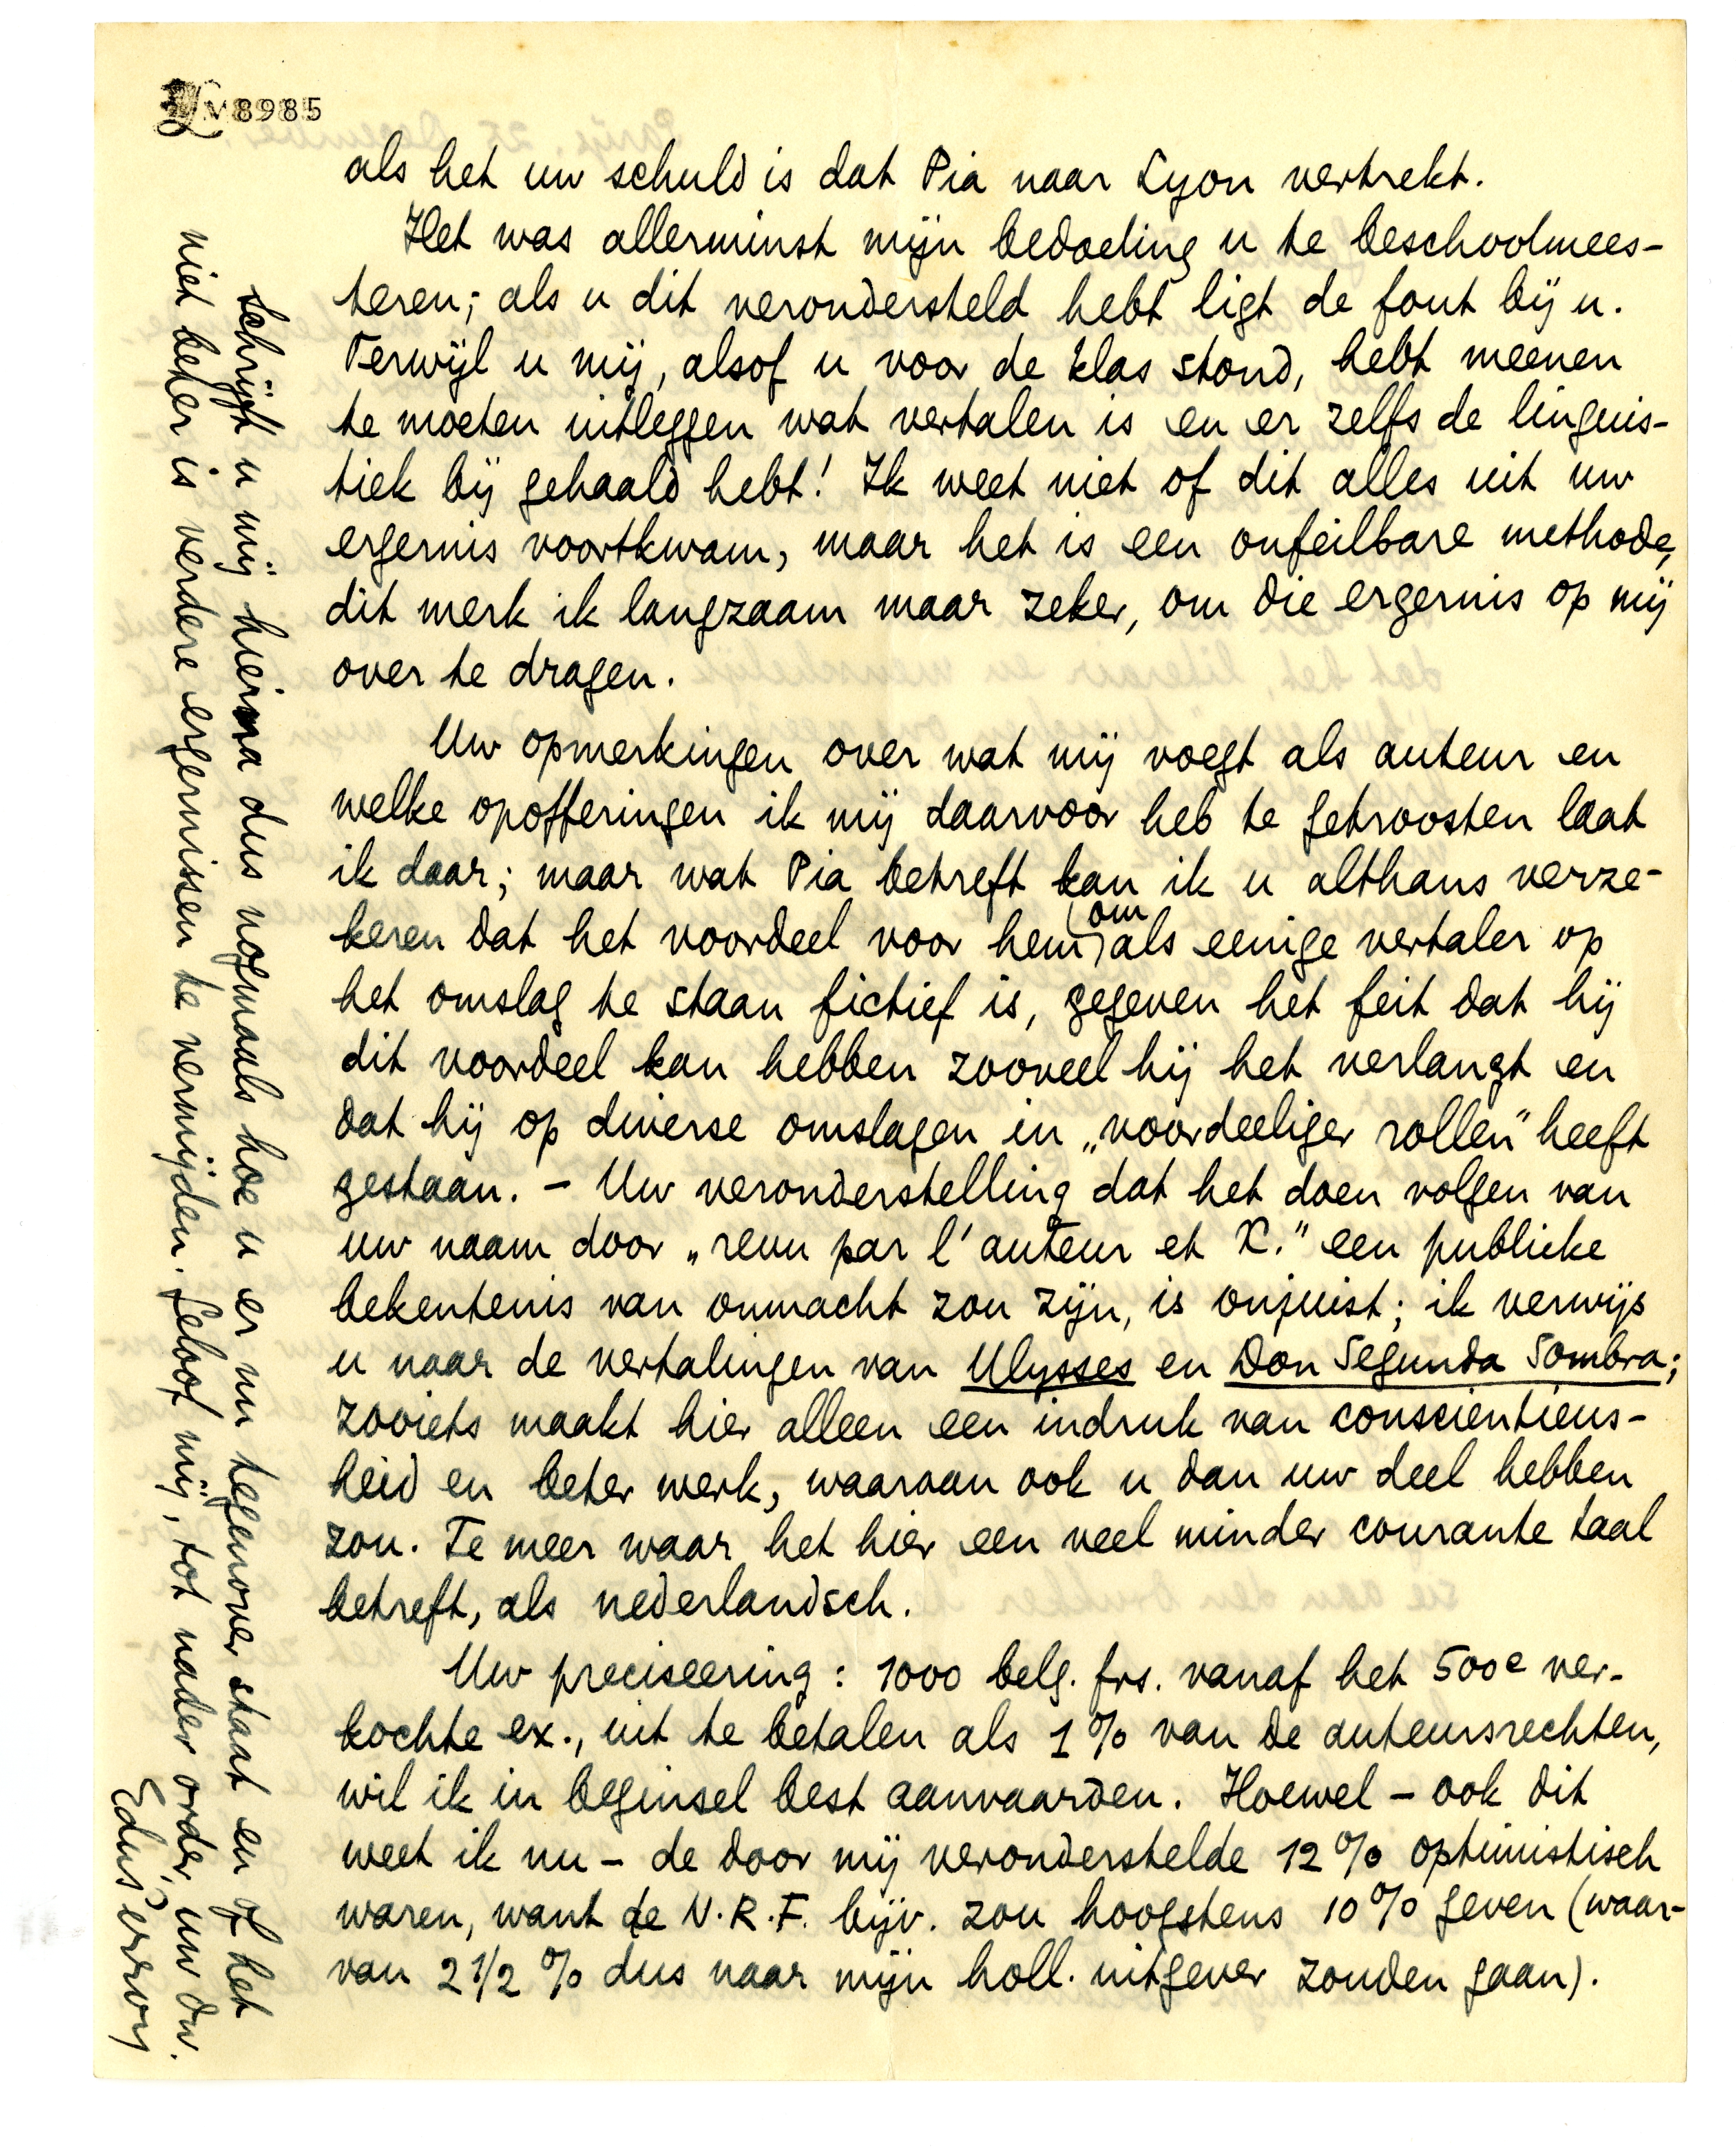 V8985
als het uw schuld is dat Pia naar Lyon vertrekt.
Het was allerminst mijn bedoeling u te beschoolmees-
teren; als u dit verondersteld hebt ligt de fout bij u.
Terwijl u mij, alsof u voor de klas stond, hebt meenen
te moeten uitleggen wat vertalen is en er zelfs de linguis-
tiek bij gehaald hebt! Ik weet niet of dit alles uit uw
ergernis voortkwam, maar het is een onfeilbare methode,
dit merk ik langzaam maar zeker, om die ergernis op mij
over te dragen.
Uw opmerkingen over wat mij voegt als auteur en
welke opofferingen ik mij daarvoor heb te getroosten laat
ik daar; maar wat Pia betreft kan ik u althans verze-
keren dat het voordeel voor hem om als eenige vertaler op
het omslag te staan fictief is, gegeven het feit dat hij
dit voordeel kan hebben zooveel hij het verlangt en
dat hij op diverse omslagen in „voordeeliger rollen” heeft
gestaan. – Uw veronderstelling dat het doen volgen van
uw naam door „revu par l'auteur et X.” een publieke
bekentenis van onmacht zou zijn, is onjuist; ik verwijs
u naar de vertalingen van Ulysses en Don Segunda Sombra;
zooiets maakt hier alleen een indruk van conscientieus-
heid en beter werk, waarvan ook u dan uw deel hebben
zou. Te meer waar het hier een veel minder courante taal
betreft, als nederlandsch.
Uw preciseering: 1000 belg. frs. vanaf het 500e ver-
kochte ex., uit te betalen als 1% van de auteursrechten,
wil ik in beginsel best aanvaarden. Hoewel – ook dit
weet ik nu – de door mij veronderstelde 12% optimistisch
waren, want de N.R.F. bijv. zou hoogstens 10% geven (waar-
van 2 1/2 % dus naar mijn holl. uitgever zouden gaan).
Schrijft u mij hierna dus nogmaals hoe u er nu tegenover staat en of het
niet beter is verdere ergernissen te vermijden. Geloof mij, tot nader order, uw dw.
EduPerron